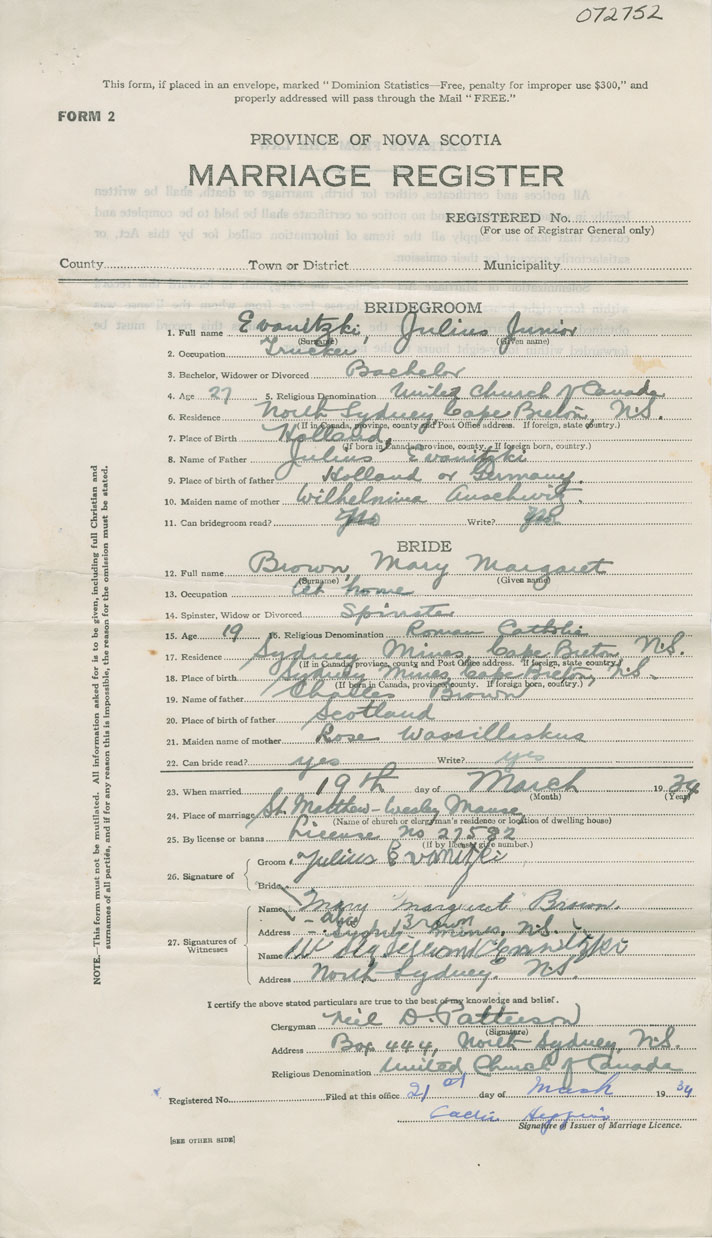 072752
This form, if placed in an envelope, marked "Dominion Statistics—Free, penalty for improper use $300," and
properly addressed will pass through the Mail "FREE."
FORM 2
PROVINCE OF NOVA SCOTIA
MARRIAGE REGISTER
REGISTERED No.
(For use of Registrar General only)
County Town or District Municipality
BRIDEGROOM
1. Full name Evanitzki, Julius Junior
(Surname) (Given name)
2. Occupation Trucker
3. Bachelor, Widower or Divorced Bachelor
4. Age 27 5. Religious Denomination United Church of Canada
6. Residence North Sydney, Cape Breton, N.S.
(If in Canada, province, county and Post Office address. If foreign, state country.)
7. Place of Birth Holland,
(If born in Canada, province, county. If foreign born, country.)
8. Name of Father Julius Evanitzki
9. Place of birth of father Holland or Germany.
10. Maiden name of mother Wilhelmina Auschwitz.
11. Can bridegroom read? yes Write? yes
BRIDE
12. Full name Brown, Mary Margaret
(Surname) (Given name)
13. Occupation At home
14. Spinster, Widow or Divorced Spinster
15. Age 19 16. Religious Denomination Roman Catholic
17. Residence Sydney Mines, Cape Breton, N.S.
(If in Canada, province, county and Post Office address. If foreign, state country.)
18. Place of birth Sydney Mines, Cape Breton, N.S.
(If born in Canada, province, county. If foreign born, country.)
19. Name of father Charles Brown
20. Place of birth of father Scotland
21. Maiden name of mother Rose Wassillaskus
22. Can bride read? yes Write? yes
23. When married 19th day of March 1934
(Month) (Year)
24. Place of marriage St. Matthew-Wesley Manse
(Name of church or clergyman's residence or location of dwelling house)
25. By license or banns License No 27592
(If by license give number.)
26. Signature of
Groom Julius Evanitzki
Bride
27. Signatures of
Witnesses
Name Mary Margaret Brown.
Brown
Address Sydney Mines, N.S.
Name Evanitzki
Address North Sydney, N.S.
I certify the above stated particulars are true to the best of my knowledge and belief.
Clergyman Neil D. Patterson
(Signature)
Address Box 444, North Sydney, N.S.
Religious Denomination United Church of Canada
Registered No. Filed at this office 21st day of March 1934
Signature of Issuer of Marriage Licence.
[SEE OTHER SIDE]
NOTE.—This form must not be mutilated. All information asked for is to be given, including full Christian and
surnames of all parties, and if for any reason this is impossible, the reason for the omission must be stated.